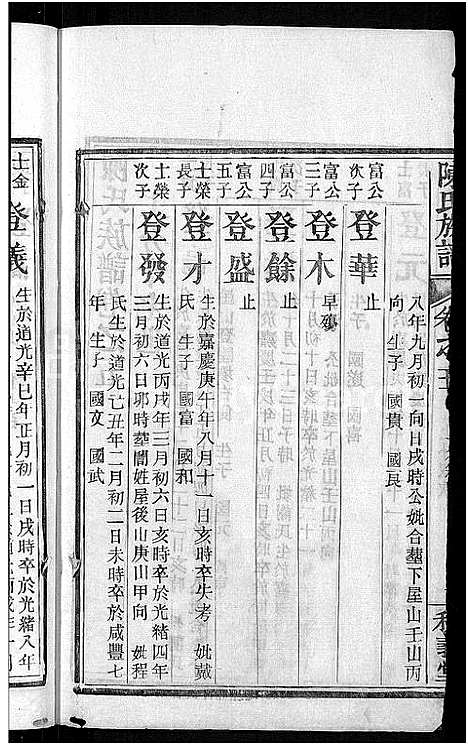 陳氏族譜
卷之五
八年九月初一向日戌時公妣合塟下屋山壬山丙
向 生子 國貴 國良
富公次子 登華 止
富公三子 登木 早殤
富公四子 登餘 止
富公五子 登盛 止
士榮長子 登才 生於嘉慶庚午年八月十一日亥時卒失考 妣戴
氏 生子 國富 國和
士榮次子 登發 生於道光丙戌年三月初六日亥時卒於光緒四年
三月初六日卯時塟闇姓屋後山庚山甲向 妣程
氏生於道光己丑年二月初二日未時卒於咸豐七
年 生子 國文 國武
士金 登義 生於道光辛巳年正月初一日戌時卒於光緒八年